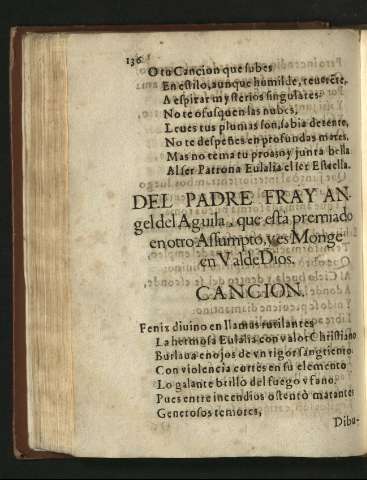 136
O tu Cancion que subes
En estilo, aunque humilde, reuerẽte,
A espirar mysterios singulares:
No te ofusquen las nubes,
Leues tus plumas son, sabia detente,
No te despeñes en profundas mares,
Mas no tema tu proa so y junta bella
Al ser Patrona Eulalia el ser Estrella.
DEL PADRE FRAY AN-
gel del Aguila, que esta premiado
en otro Assumpto, y es Monge
en Val de Dios.
CANCION.
Fenix diuino en llamas rutilantes
La hermosa Eulalia con valor Christiano
Burlaua enojos de vn rigor sangriento
Con violencia cortès en su elemento
Lo galante brillò del fuego vfano,
Pues entre incendios ostentò matantes
Generosos temores,
Dibu-